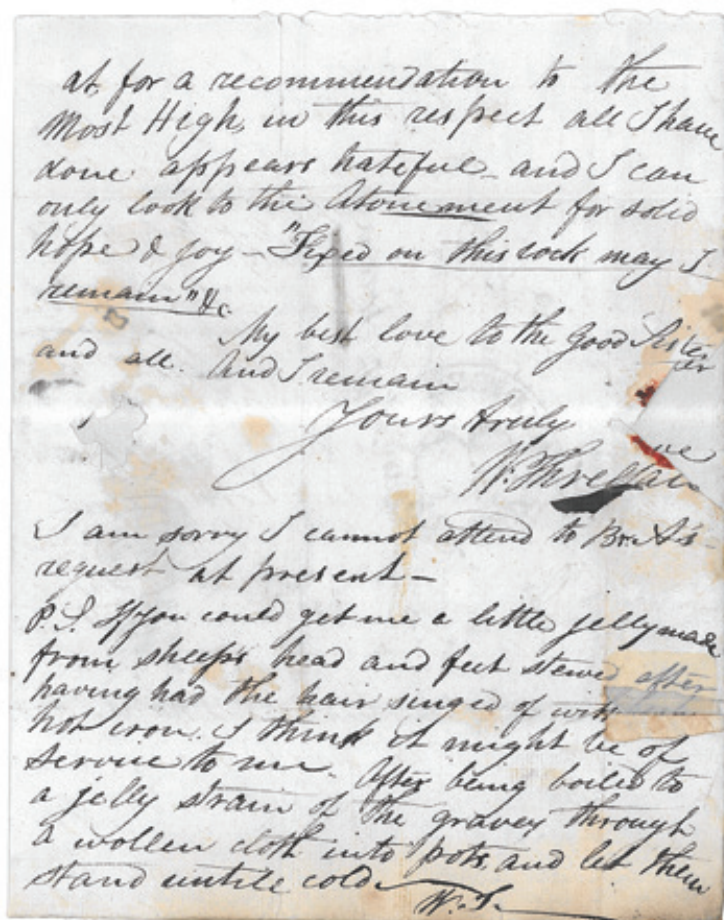 at, for a recommendation to the
Most High, in this respect all I have
done appears hateful - and I can
only look to the Atonement for solid
hope & joy - "Fixed on this rock may I
remain" &c
My best love to the good Sister
and all. And I remain
Yours truly
W. Threlfall
I am sorry I cannot attend to Br. A's
request at present -
P.S. If you could get me a little jelly made
from sheeps head and feet stewed after
having had the hair singed of with
hot iron. I think it might be of
service to me. After being boiled to
a jelly strain of the gravey through
a wollen cloth into pots, and let them
stand untile cold
W. T.